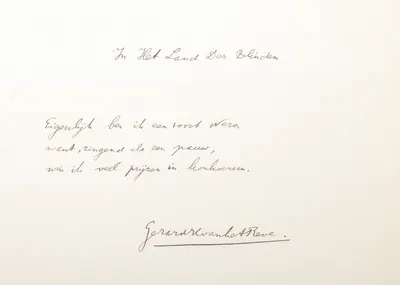 In Het Land Der Blinden
Eigenlijk ben ik een soort Nero,
want, zingend als een pauw,
win ik veel prijzen in konkoersen.
Gerard Kornelis van het Reve.